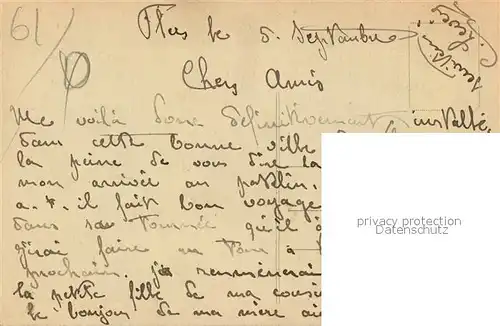 61
Flers le 5. Septembre
Chers Amis
Me voilà donc définitivement installé,
dans cette bonne ville
la peine de vous dire la
mon arrivée au patelin.
il fait bon voyage
dans sa tournée qu'il
j'irai faire un tour à
prochain. je remmènerai
la petite fille de ma cousi
le bonjour de ma mère ai
privacy protection
Datenschutz